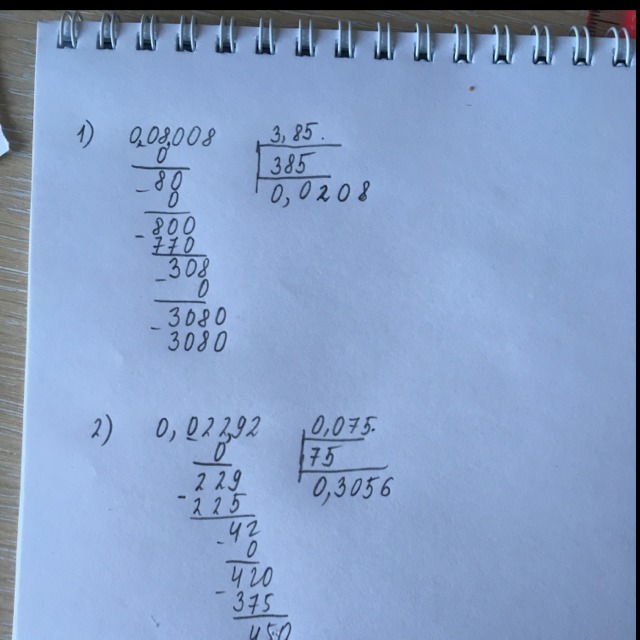 1) 0,08,008 3,85.
0 385
- 80 0,0208
0
- 800
770
- 308
- 0
- 3080
3080
2) 0,022,92 0,075.
0 75
229 0,3056
- 225
- 42
0
420
- 375
450